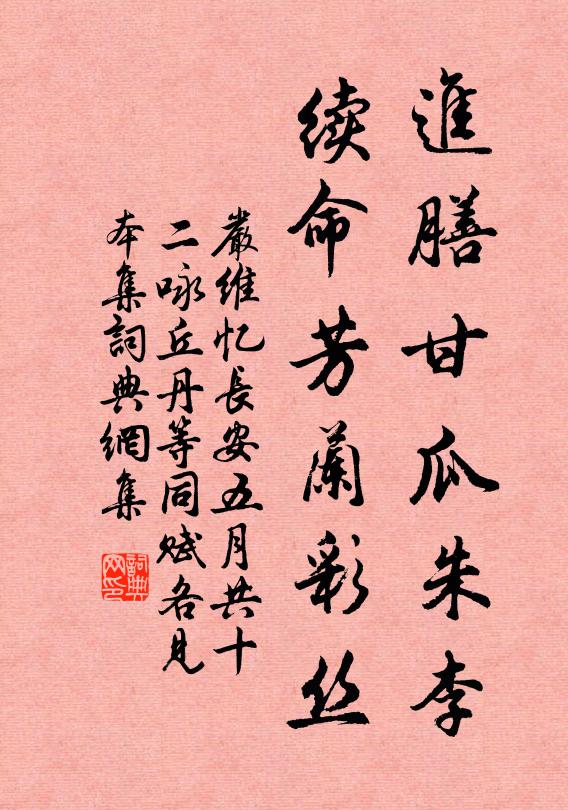 進膳甘瓜朱李
续命芳蘭彩丝
嚴維忆長安五月共十
二咏丘丹等同赋各見
本集詞典網集
詞典
网印